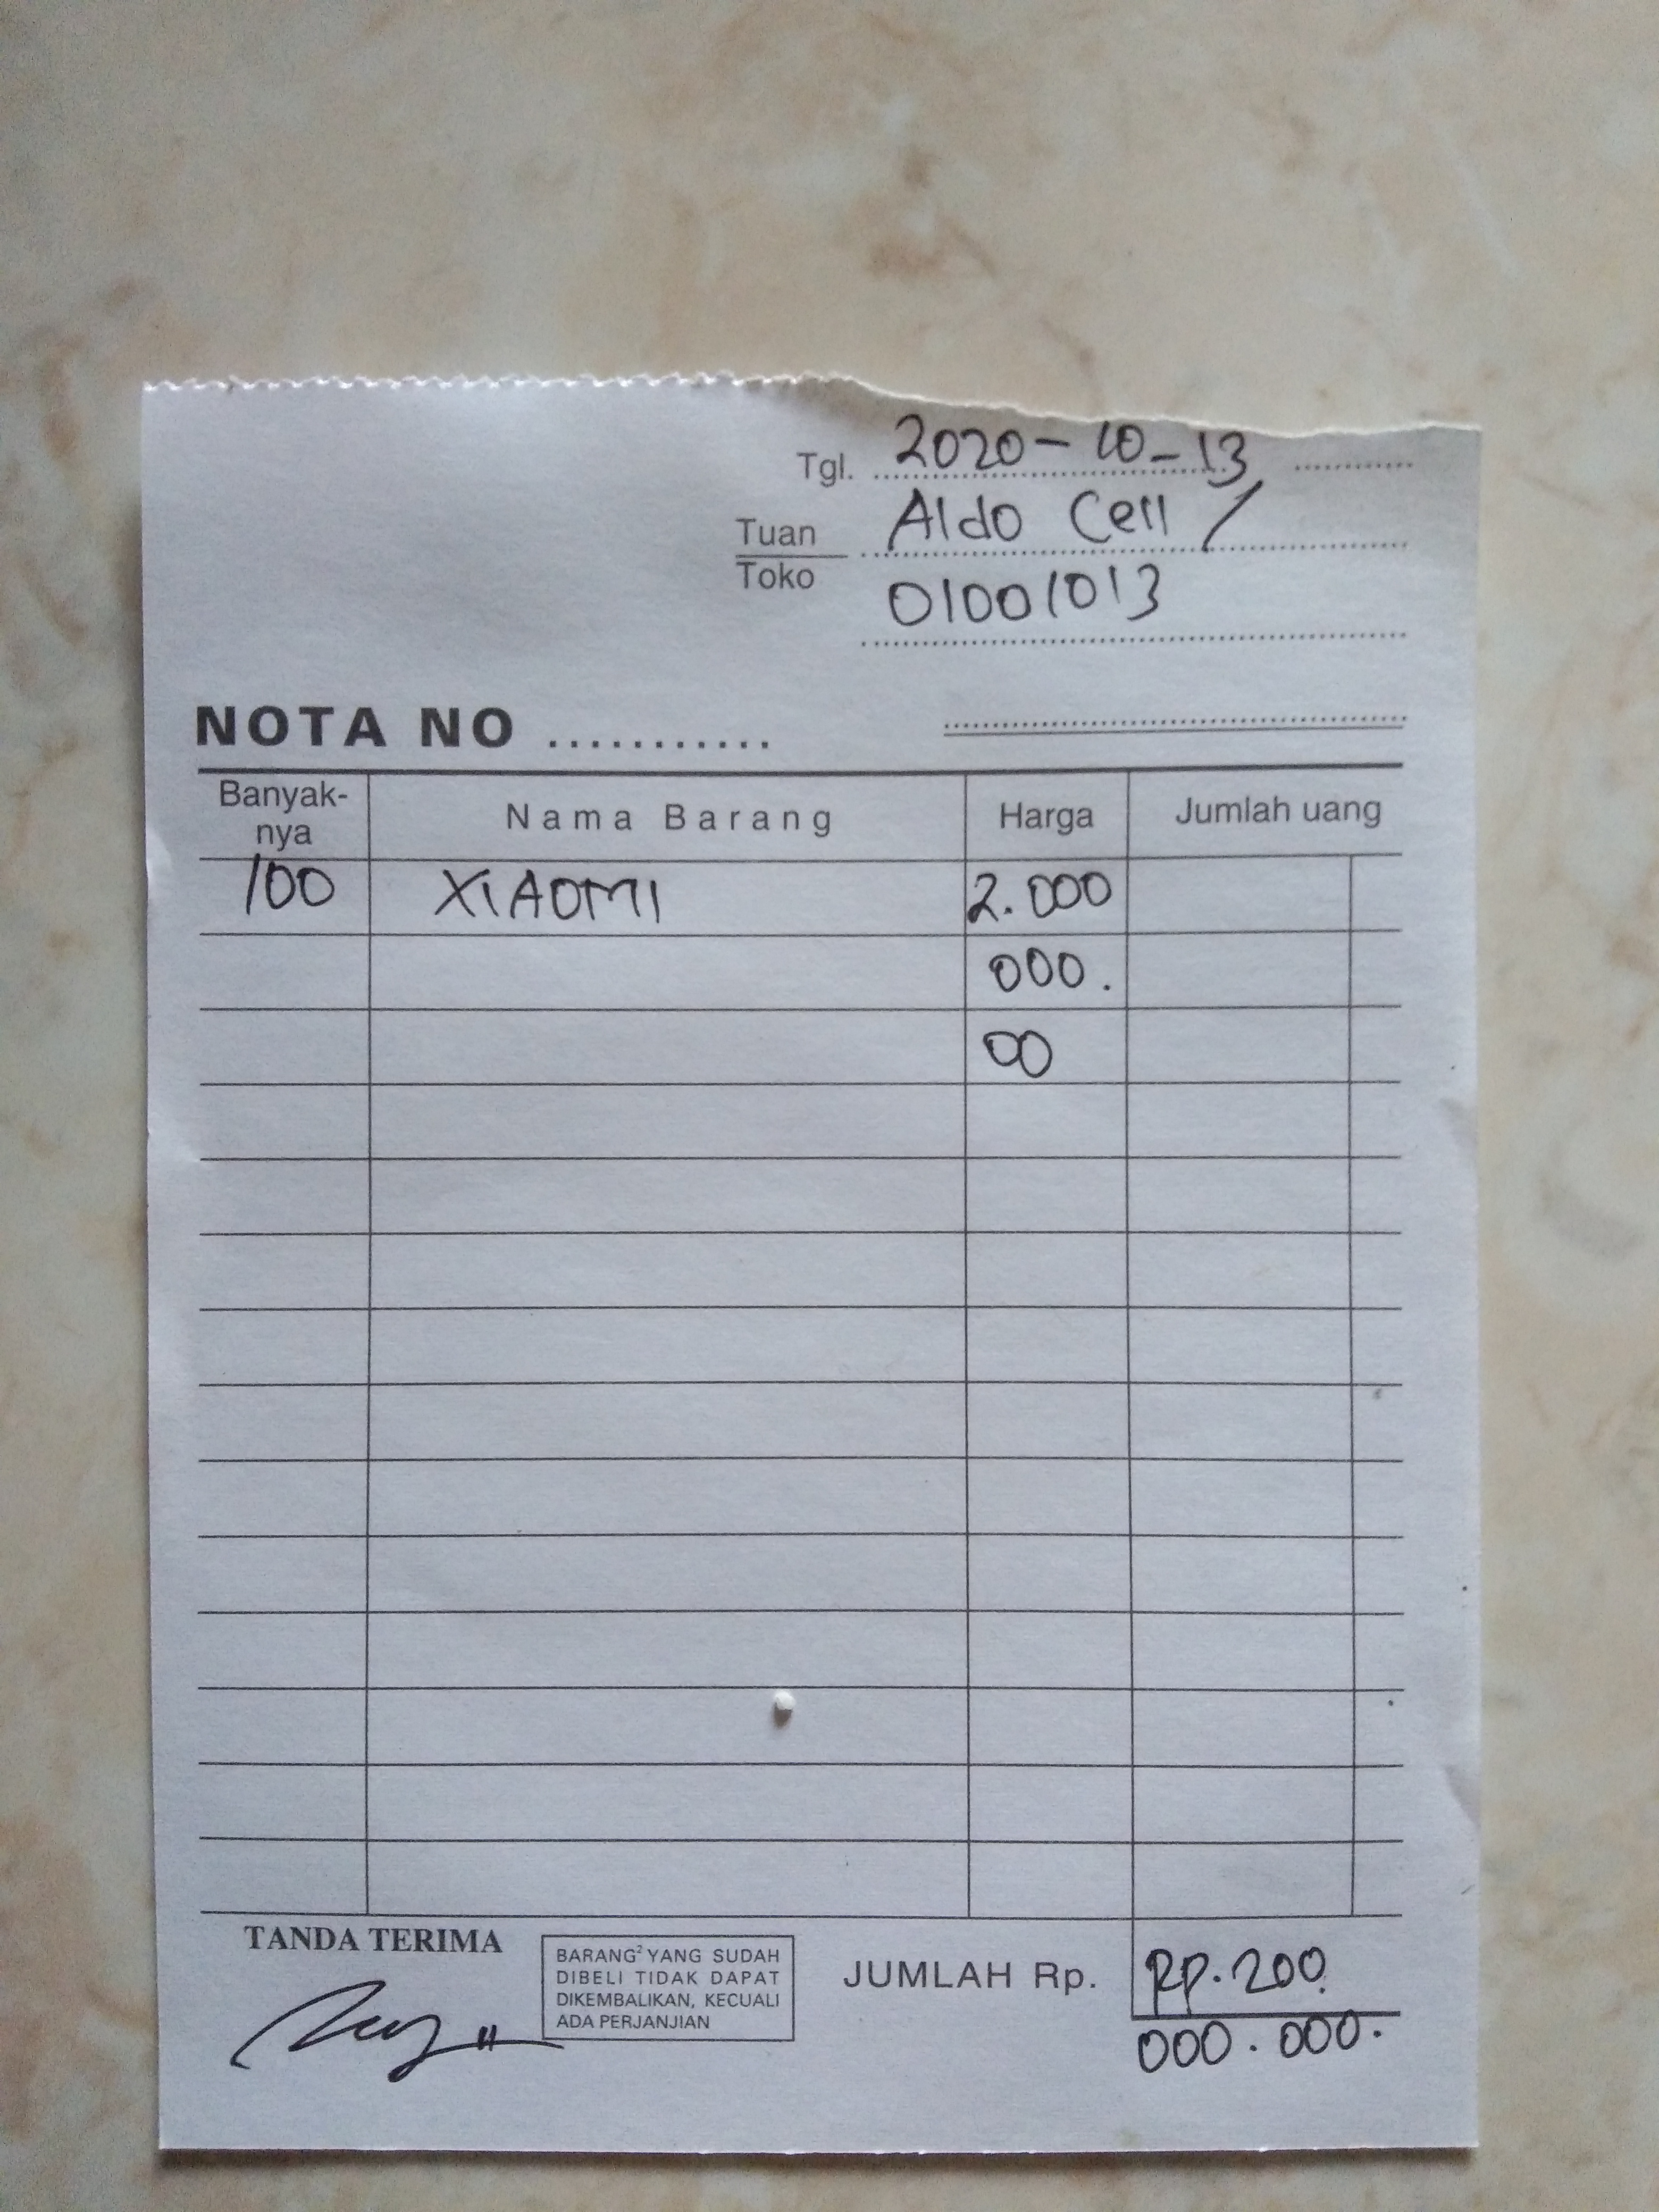 Tgl. 2020-10-13
Tuan Aldo Cell /
Toko 01001013
NOTA NO ...........
Banyak-nya Nama Barang Harga Jumlah uang
100 XIAOMI 2.000
000.
00
TANDA TERIMA
BARANG² YANG SUDAH
DIBELI TIDAK DAPAT
DIKEMBALIKAN, KECUALI
ADA PERJANJIAN
JUMLAH Rp. RP. 200.
000.000.